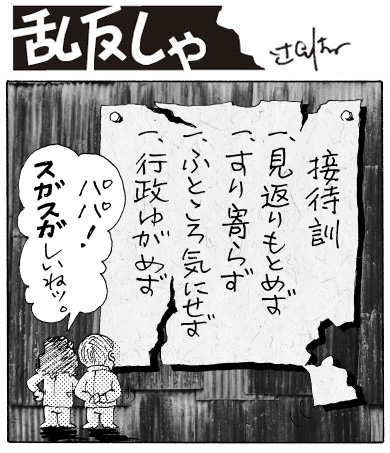 乱反しゃ
接待訓
一、見返りもとめず
一、すり寄らず
一、ふところ気にせず
一、行政ゆがめず
パパ!
スガスガ
しいねッ。